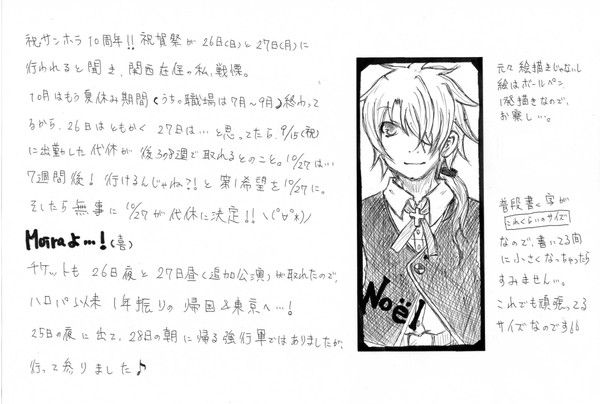 祝サンホラ10周年!! 祝賀祭が26日(日)と27日(月)に
行われると聞き、関西在住の私、戦慄。
10月はもう夏休み期間(うちの職場は7月〜9月)終わって
るから、26日はともかく27日は…と思ってたら、9/15(祝)
に出勤した代休が後ろ8週で取れるとのこと。10/27は…
7週間後!行けるんじゃね?!と第1希望を10/27に。
そしたら無事に10/27が代休に決定!!＼(^∀^*)ﾉ
Moiraよ…!(喜)
チケットも26日夜と27日昼(追加公演)が取れたので、
ハロパ以来1年振りの帰国&東京へ…!
25日の夜に出て、28日の朝に帰る強行軍ではありましたが、
行って参りました♪
Noël
元々絵描きじゃないし
絵はボールペン
1発描きなので、
お察し…。
普段書く字が
これくらいのサイズ
なので、書いてる間
に小さくなっちゃったら
すみません…。
これでも頑張ってる
サイズなのです